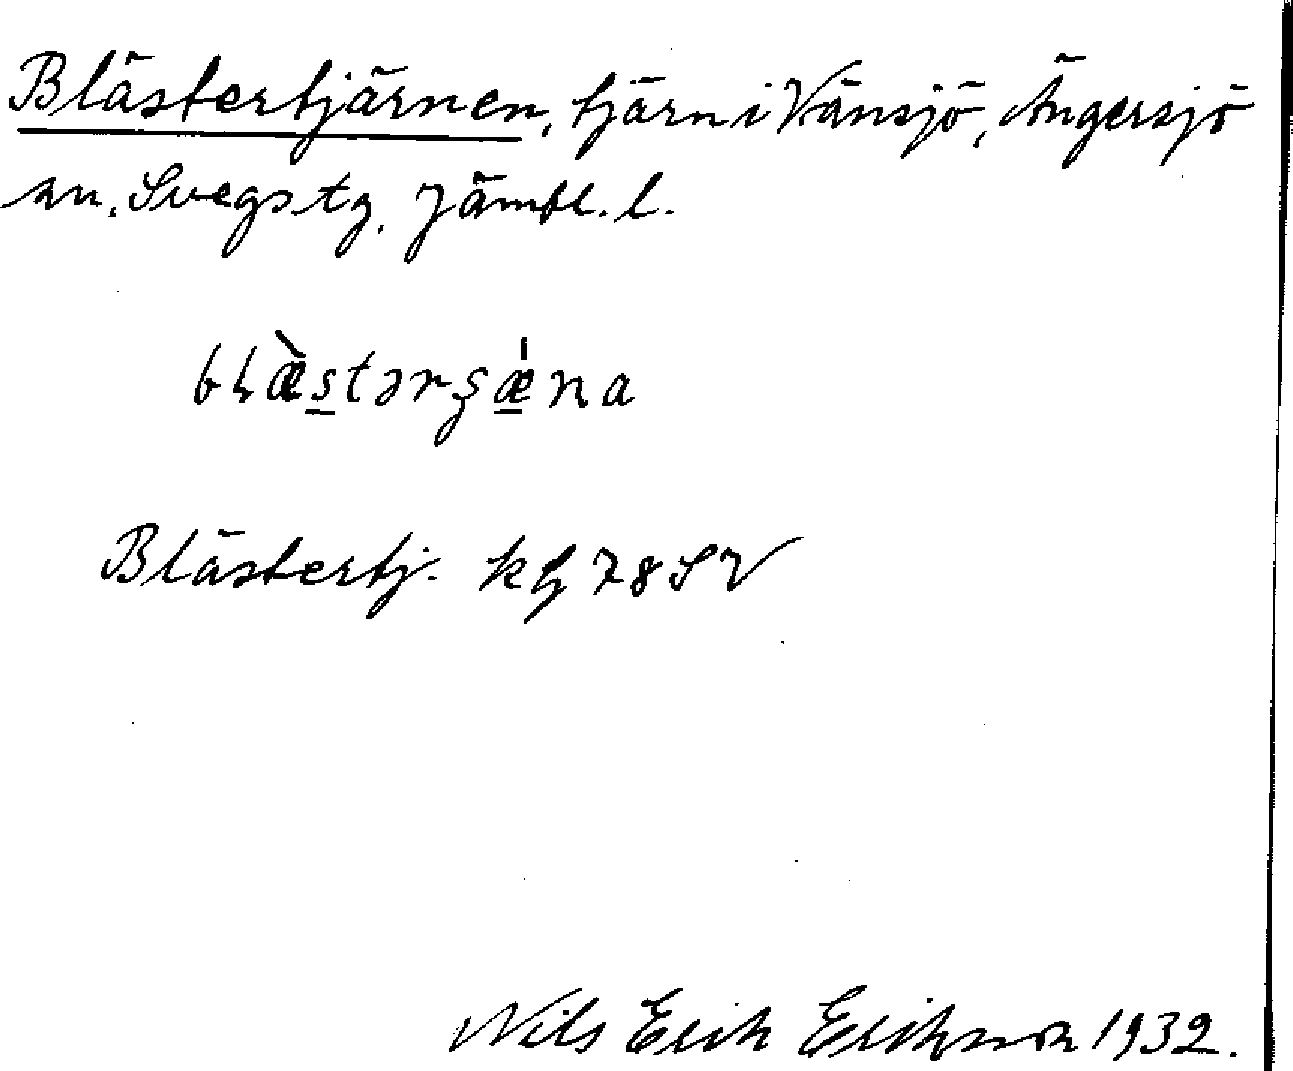 Blästertjärnen, tjärn i Vänsjö, Ängersjö
sn, Svegs tg, Jämtl. l.
Blästertj. kg 78 SV
Nils Erik Erikson 1932.